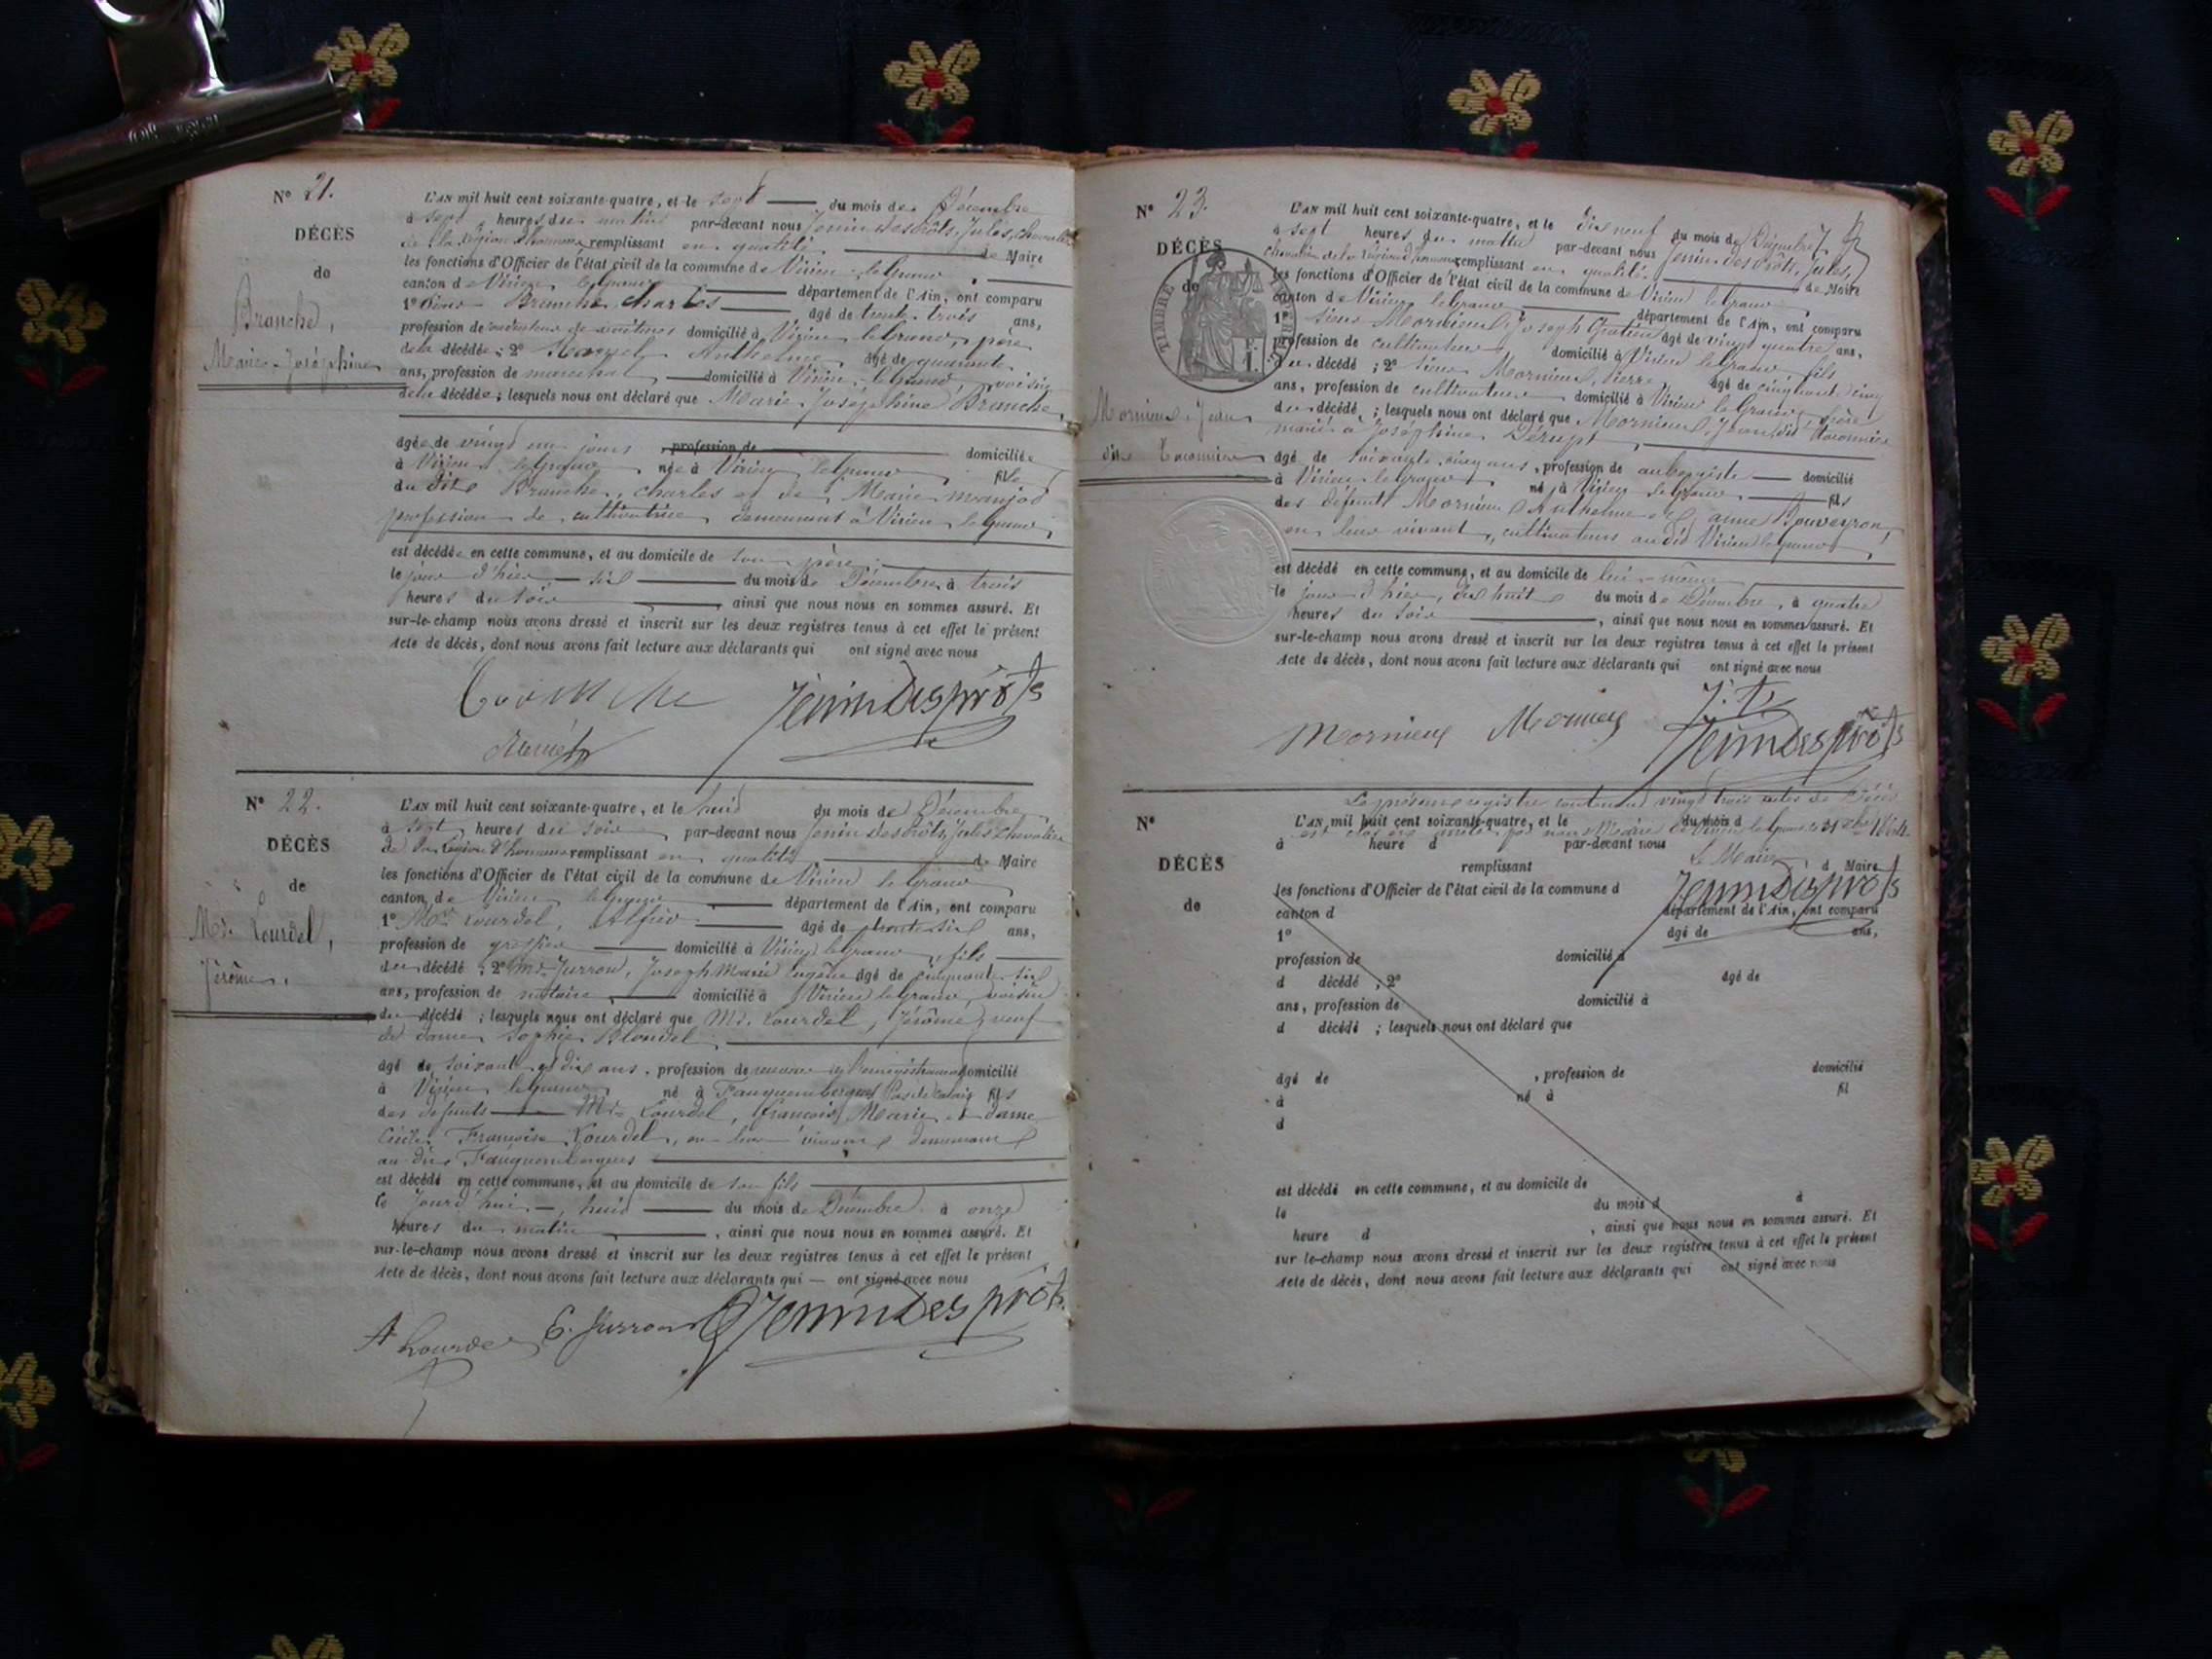 N° 21.
DÉCÈS
de
Branche,
Marie-Joséphine
L'AN mil huit cent soixante-quatre, et le sept du mois de Décembre
à sept heures du matin par-devant nous Jenin Desprôts, Jules, chevalier
de la Légion d'honneur remplissant en qualité de Maire
les fonctions d'Officier de l'état civil de la commune de Virieu-le-Grand
canton de Virieu le Grand département de l'Ain, ont comparu
1° Branche Charles âgé de trente-trois ans,
profession de domicilié à Virieu le Grand, père
de la décédée; 2° Anthelme âgé de quarante
ans, profession de marechal domicilié à Virieu-le-Grand, voisin
de la décédée; lesquels nous ont déclaré que Marie Joséphine Branche
âgée de vingt un jours profession de domiciliée
à Virieu le Grand née à Virieu le Grand fille
du dit Branche, Charles et de Marie
profession de cultivatrice demeurant à Virieu le Grand
est décédée en cette commune, et au domicile de son père
le jour d'hier six du mois de Décembre à trois
heures du soir ainsi que nous nous en sommes assuré. Et
sur-le-champ nous avons dressé et inscrit sur les deux registres tenus à cet effet le présent
Acte de décès, dont nous avons fait lecture aux déclarants qui ont signé avec nous
Branche JeninDesprôts
N° 22.
DÉCÈS
de
Mr. Lourdel,
Jérôme.
L'AN mil huit cent soixante-quatre, et le huit du mois de Décembre
à sept heures du soir par-devant nous Jenin Desprôts, Jules chevalier
de la Légion d'honneur remplissant en qualité de Maire
les fonctions d'Officier de l'état civil de la commune de Virieu le Grand
canton de Virieu le Grand département de l'Ain, ont comparu
1° Mr. Lourdel, Alfred âgé de trente-six ans,
profession de greffier domicilié à Virieu le Grand, fils
du décédé; 2° Mr. Jurron, Joseph Marie Eugène âgé de cinquante-six
ans, profession de notaire, domicilié à Virieu le Grand, voisin
du décédé; lesquels nous ont déclaré que Mr. Lourdel, Jérôme, veuf
de dame Sophie Blondel
âgé de soixante et dix ans, profession de domicilié
à Virieu le Grand né à Fauquembergues Pas de Calais fils
des défunts Mr. Lourdel, François Marie et dame
Cécile Françoise Lourdel, en leur vivant demeurant
au dit Fauquembergues
est décédé en cette commune, et au domicile de son fils
le jourd'hui, huit du mois de Décembre à onze
heures du matin, ainsi que nous nous en sommes assuré. Et
sur-le-champ nous avons dressé et inscrit sur les deux registres tenus à cet effet le présent
Acte de décès, dont nous avons fait lecture aux déclarants qui — ont signé avec nous
A Lourdel E. Jurron JeninDesprôts
N° 23.
DÉCÈS
de
TIMBRE
F.
1.
Mornieux, Jean
L'AN mil huit cent soixante-quatre, et le dix neuf du mois de Décembre
à sept heures du matin par-devant nous Jenin Desprôts, Jules,
chevalier de la Légion d'honneur remplissant en qualité de Maire
les fonctions d'Officier de l'état civil de la commune de Virieu le Grand
canton de Virieu le Grand département de l'Ain, ont comparu
1° sieur Mornieux, Joseph Gratien âgé de vingt quatre ans,
profession de cultivateur domicilié à Virieu le Grand fils
du décédé; 2° sieur Mornieux, Pierre âgé de cinquante cinq
ans, profession de cultivateur domicilié à Virieu le Grand, frère
du décédé; lesquels nous ont déclaré que Mornieux, Jean, dit
marié à Joséphine
âgé de soixante cinq ans, profession de aubergiste domicilié
à Virieu le Grand né à Virieu le Grand fils
des défunts Mornieux Anthelme et Anne Bouveyron,
en leur vivant, cultivateurs audit Virieu le Grand,
est décédé en cette commune, et au domicile de lui-même
le jour d'hier, dix huit du mois de Décembre, à quatre
heures du soir, ainsi que nous nous en sommes assuré. Et
sur-le-champ nous avons dressé et inscrit sur les deux registres tenus à cet effet le présent
Acte de décès, dont nous avons fait lecture aux déclarants qui ont signé avec nous
Mornieux Mornieux JeninDesprôts
Le présent registre contenant vingt trois actes de Décès
est clos et arrêté par nous Maire de Virieu le Grand le 31 Xbre 1864.
Le Maire
JeninDesprôts
N°
DÉCÈS
de
L'AN mil huit cent soixante-quatre, et le du mois d
à heure d par-devant nous
remplissant d Maire
les fonctions d'Officier de l'état civil de la commune d
canton d département de l'Ain, ont comparu
1° âgé de ans,
profession de domicilié à
d décédé; 2° âgé de
ans, profession de domicilié à
d décédé; lesquels nous ont déclaré que
âgé de, profession de domicilié
à né à fil
d
est décédé en cette commune, et au domicile de
le du mois d à
heure d, ainsi que nous nous en sommes assuré. Et
sur le-champ nous avons dressé et inscrit sur les deux registres tenus à cet effet le présent
Acte de décès, dont nous avons fait lecture aux déclarants qui ont signé avec nous